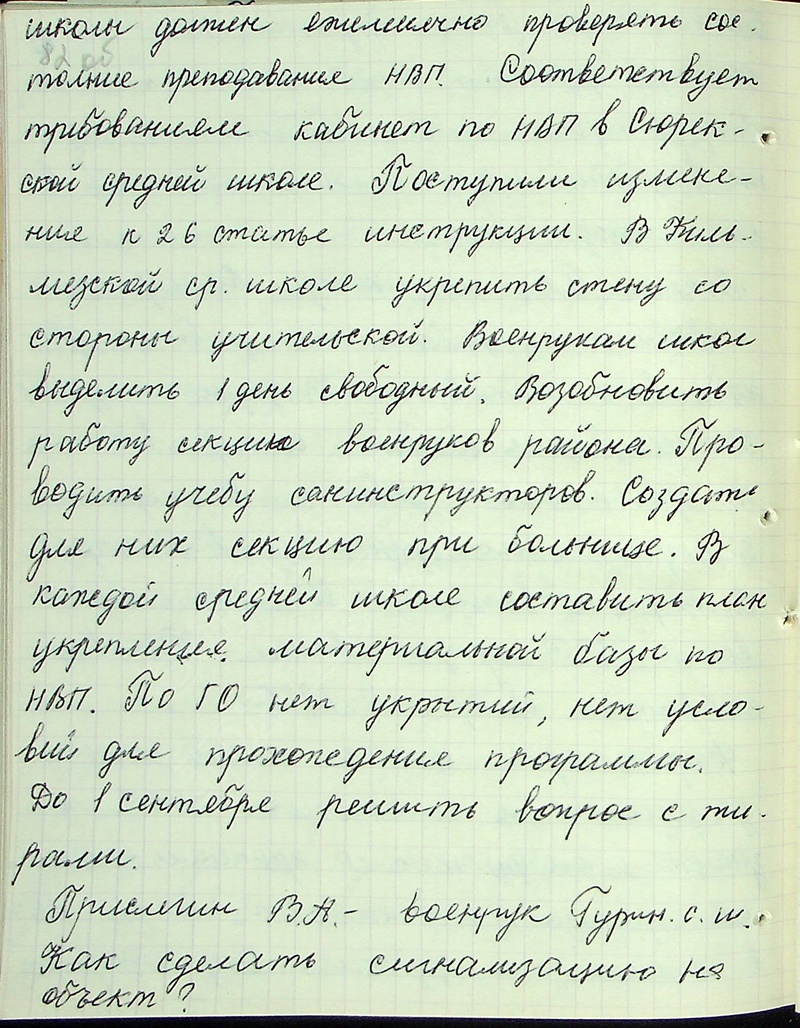 школы должен ежемесячно проверять сос-
82 об
тояние преподавание НВП. Соответствует
требованиям кабинет по НВП в Сюрек-
ской средней школе. Поступили измене-
ние к 26 статье инструкции. В Киль-
мезской ср. школе укрепить стену со
стороны учительской. Военрукам школ
выделить 1 день свободный. Возобновить
работу секцию военруков района. Про-
водить учебу санинструкторов. Создать
для них секцию при больнице. В
каждой средней школе составить план
укрепления материальной базы по
НВП. По ГО нет укрытий, нет усло-
вий для прохождения программы.
До 1 сентября решить вопрос с ти-
рами.
В.А. - военрук Гурин. с. ш.
Как сделать сигнализацию на
объект?